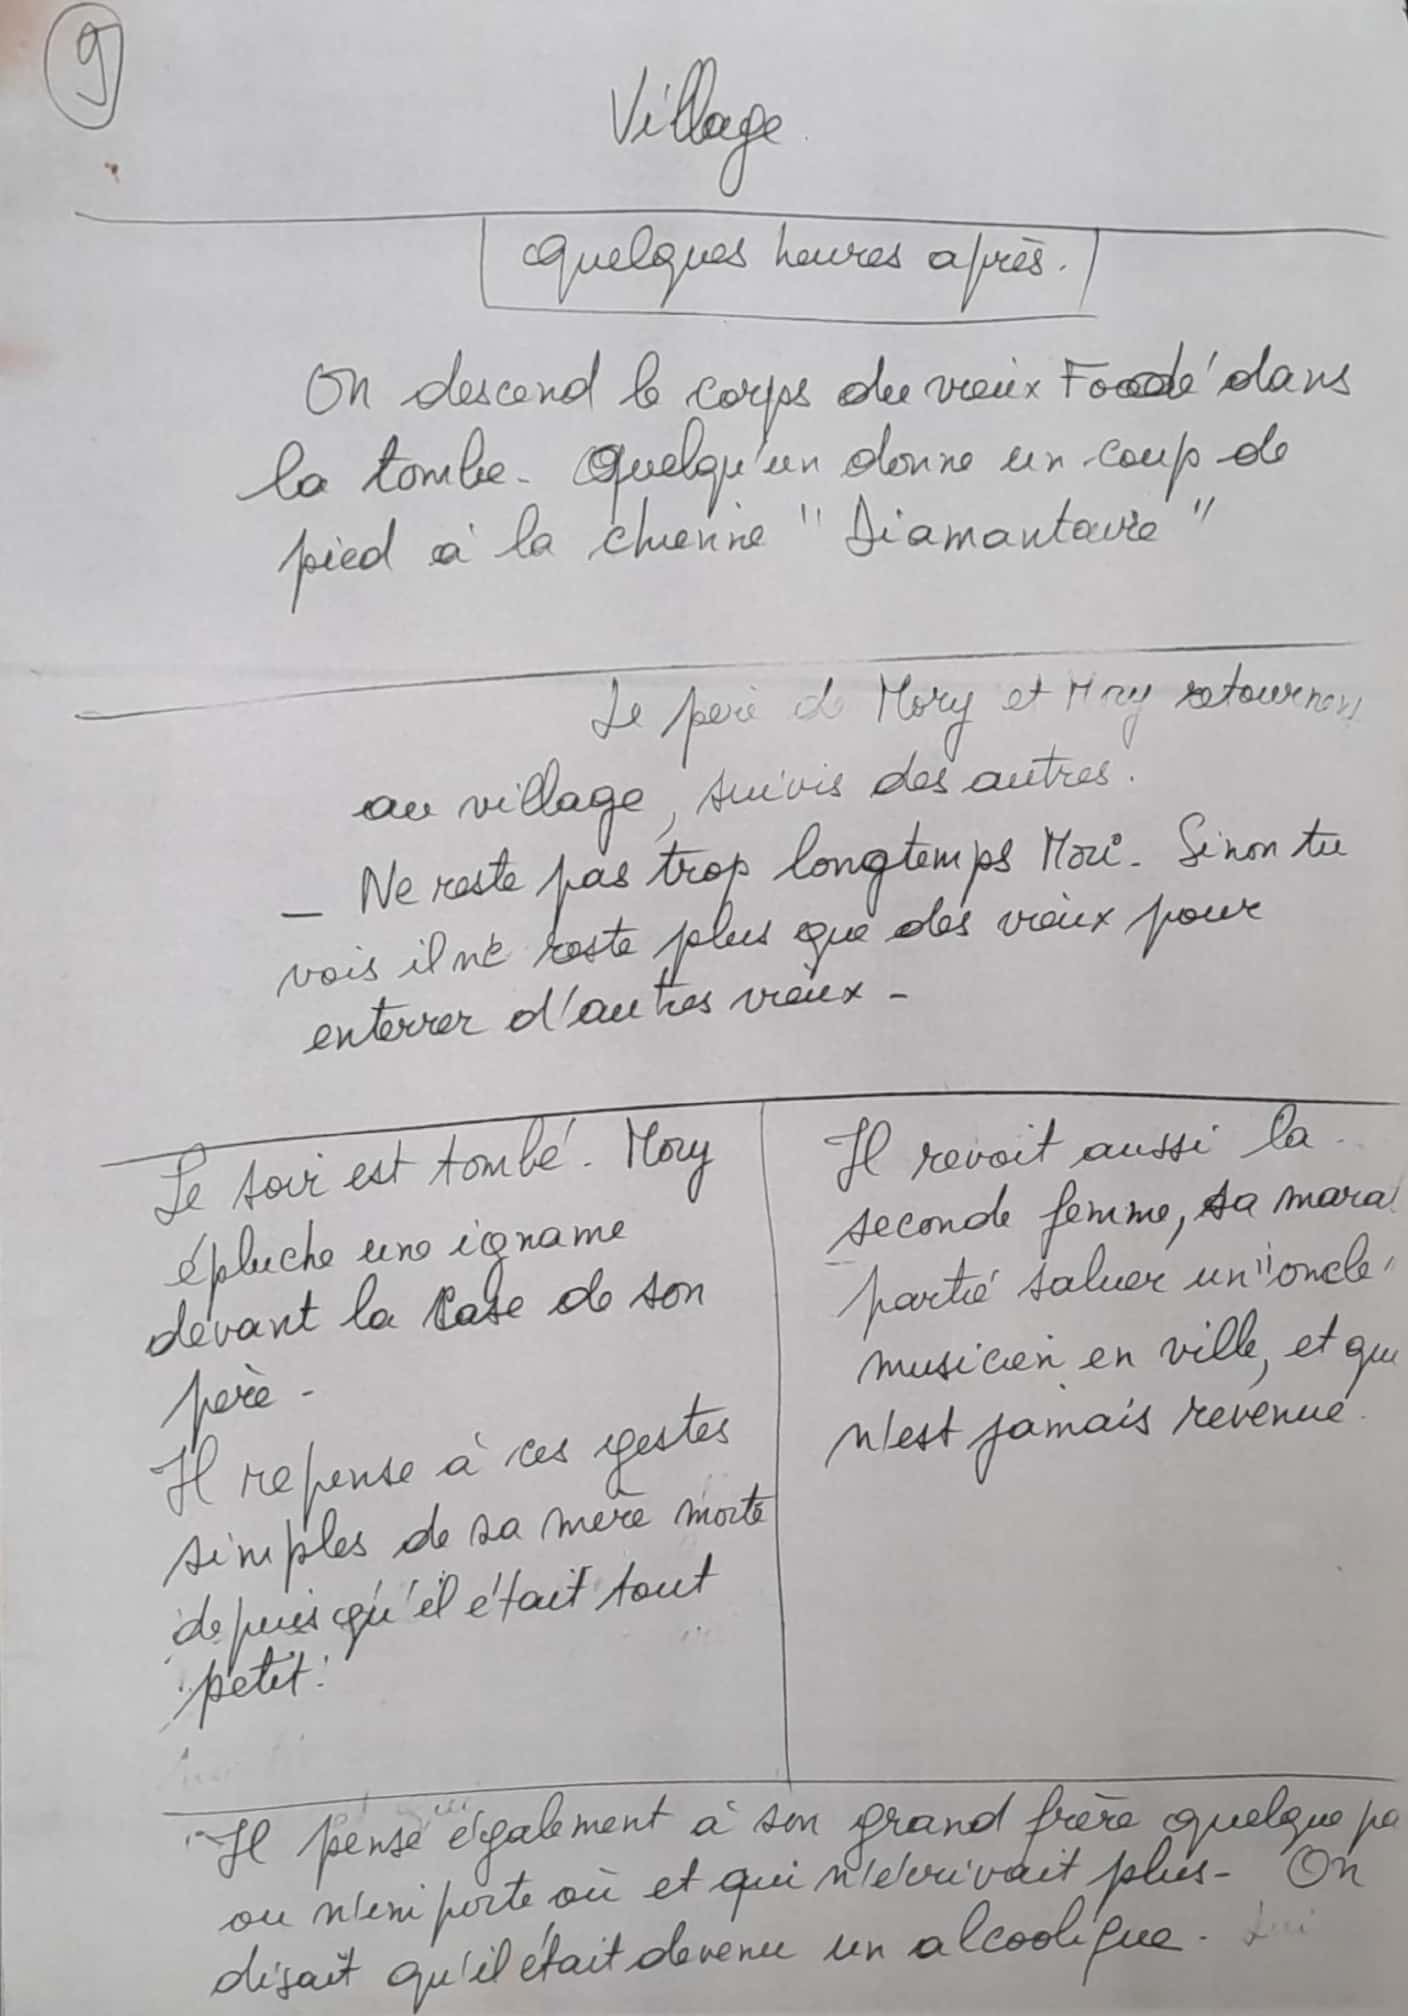 9
Village
Quelques heures après.
On descend le corps du vieux Foodé dans
la tombe. Quelqu'un donne un coup de
pied à la chienne "Diamantaire"
Le père de Mory et Mory retournent
au village, suivis des autres.
— Ne reste pas trop longtemps Mori. Sinon tu
vois il ne reste plus que des vieux pour
enterrer d'autres vieux -
Le soir est tombé. Mory
épluche une igname
devant la case de son
père -
Il repense à ces gestes
simples de sa mère morte
depuis qu'il était tout
petit.
Il revoit aussi la
seconde femme, sa mara
partie saluer un "oncle"
musicien en ville, et qui
n'est jamais revenue.
Il pense également à son grand frère quelque pa
ou n'importe où et qui n'écrivait plus - On
disait qu'il était devenu un alcoolique. Lui